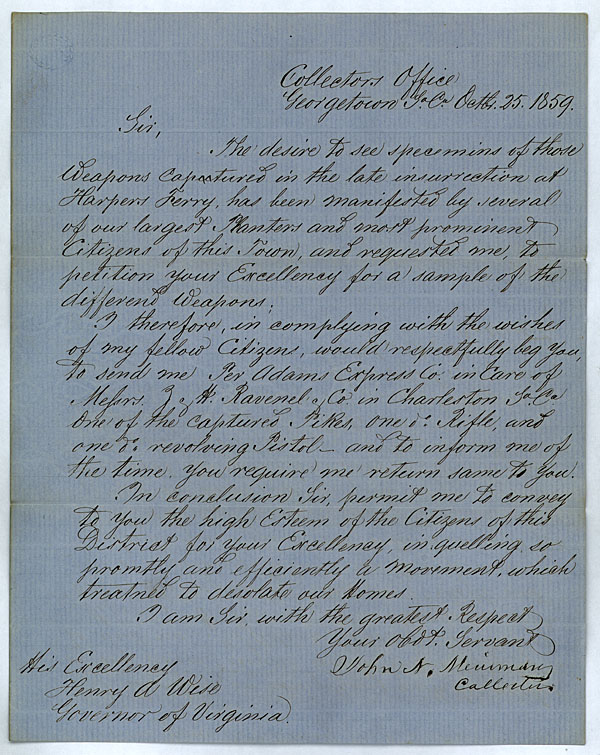 Collectors Office
Georgetown So. Ca. Octbr. 25. 1859.
Sir,
The desire to see specimins of those
Weapons captured in the late insurrection at
Harpers Ferry, has been manifested by several
of our largest Planters and most prominent
Citizens of this Town, and requested me, to
petition your Excellency for a sample of the
differend Weapons.
I therefore, in complying with the wishes
of my fellow Citizens, would respectfully beg You,
to send me Per Adams Express Co. in Care of
Messrs. & H. Ravenel & Co. in Charleston So. Ca
One of the captured Pikes, one do. Rifle, and
one do. revolving Pistol – and to inform me of
the time. you require me return same to You.
In conclusion Sir, permit me to convey
to you the high Esteem of the Citizens of this
District for Your Excellency, in quelling so
promtly and efficiently a movement, which
treatned to desolate our homes.
I am Sir, with the greatest Respect
Your Obdt. Servant
John N.
Collector.
His Excellency
Henry A Wise
Governor of Virginia.